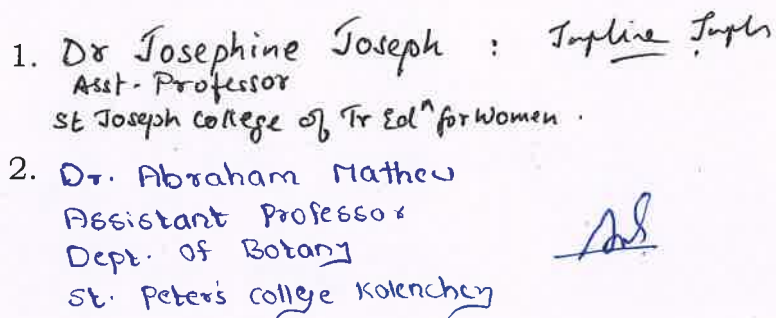 1. Dr Josephine Joseph :
Asst. Professor
St Joseph College of Tr Edⁿ for Women .
2. Dr. Abraham Mathew
Assistant Professor
Dept. of Botany
St. Peter's college Kolenchery